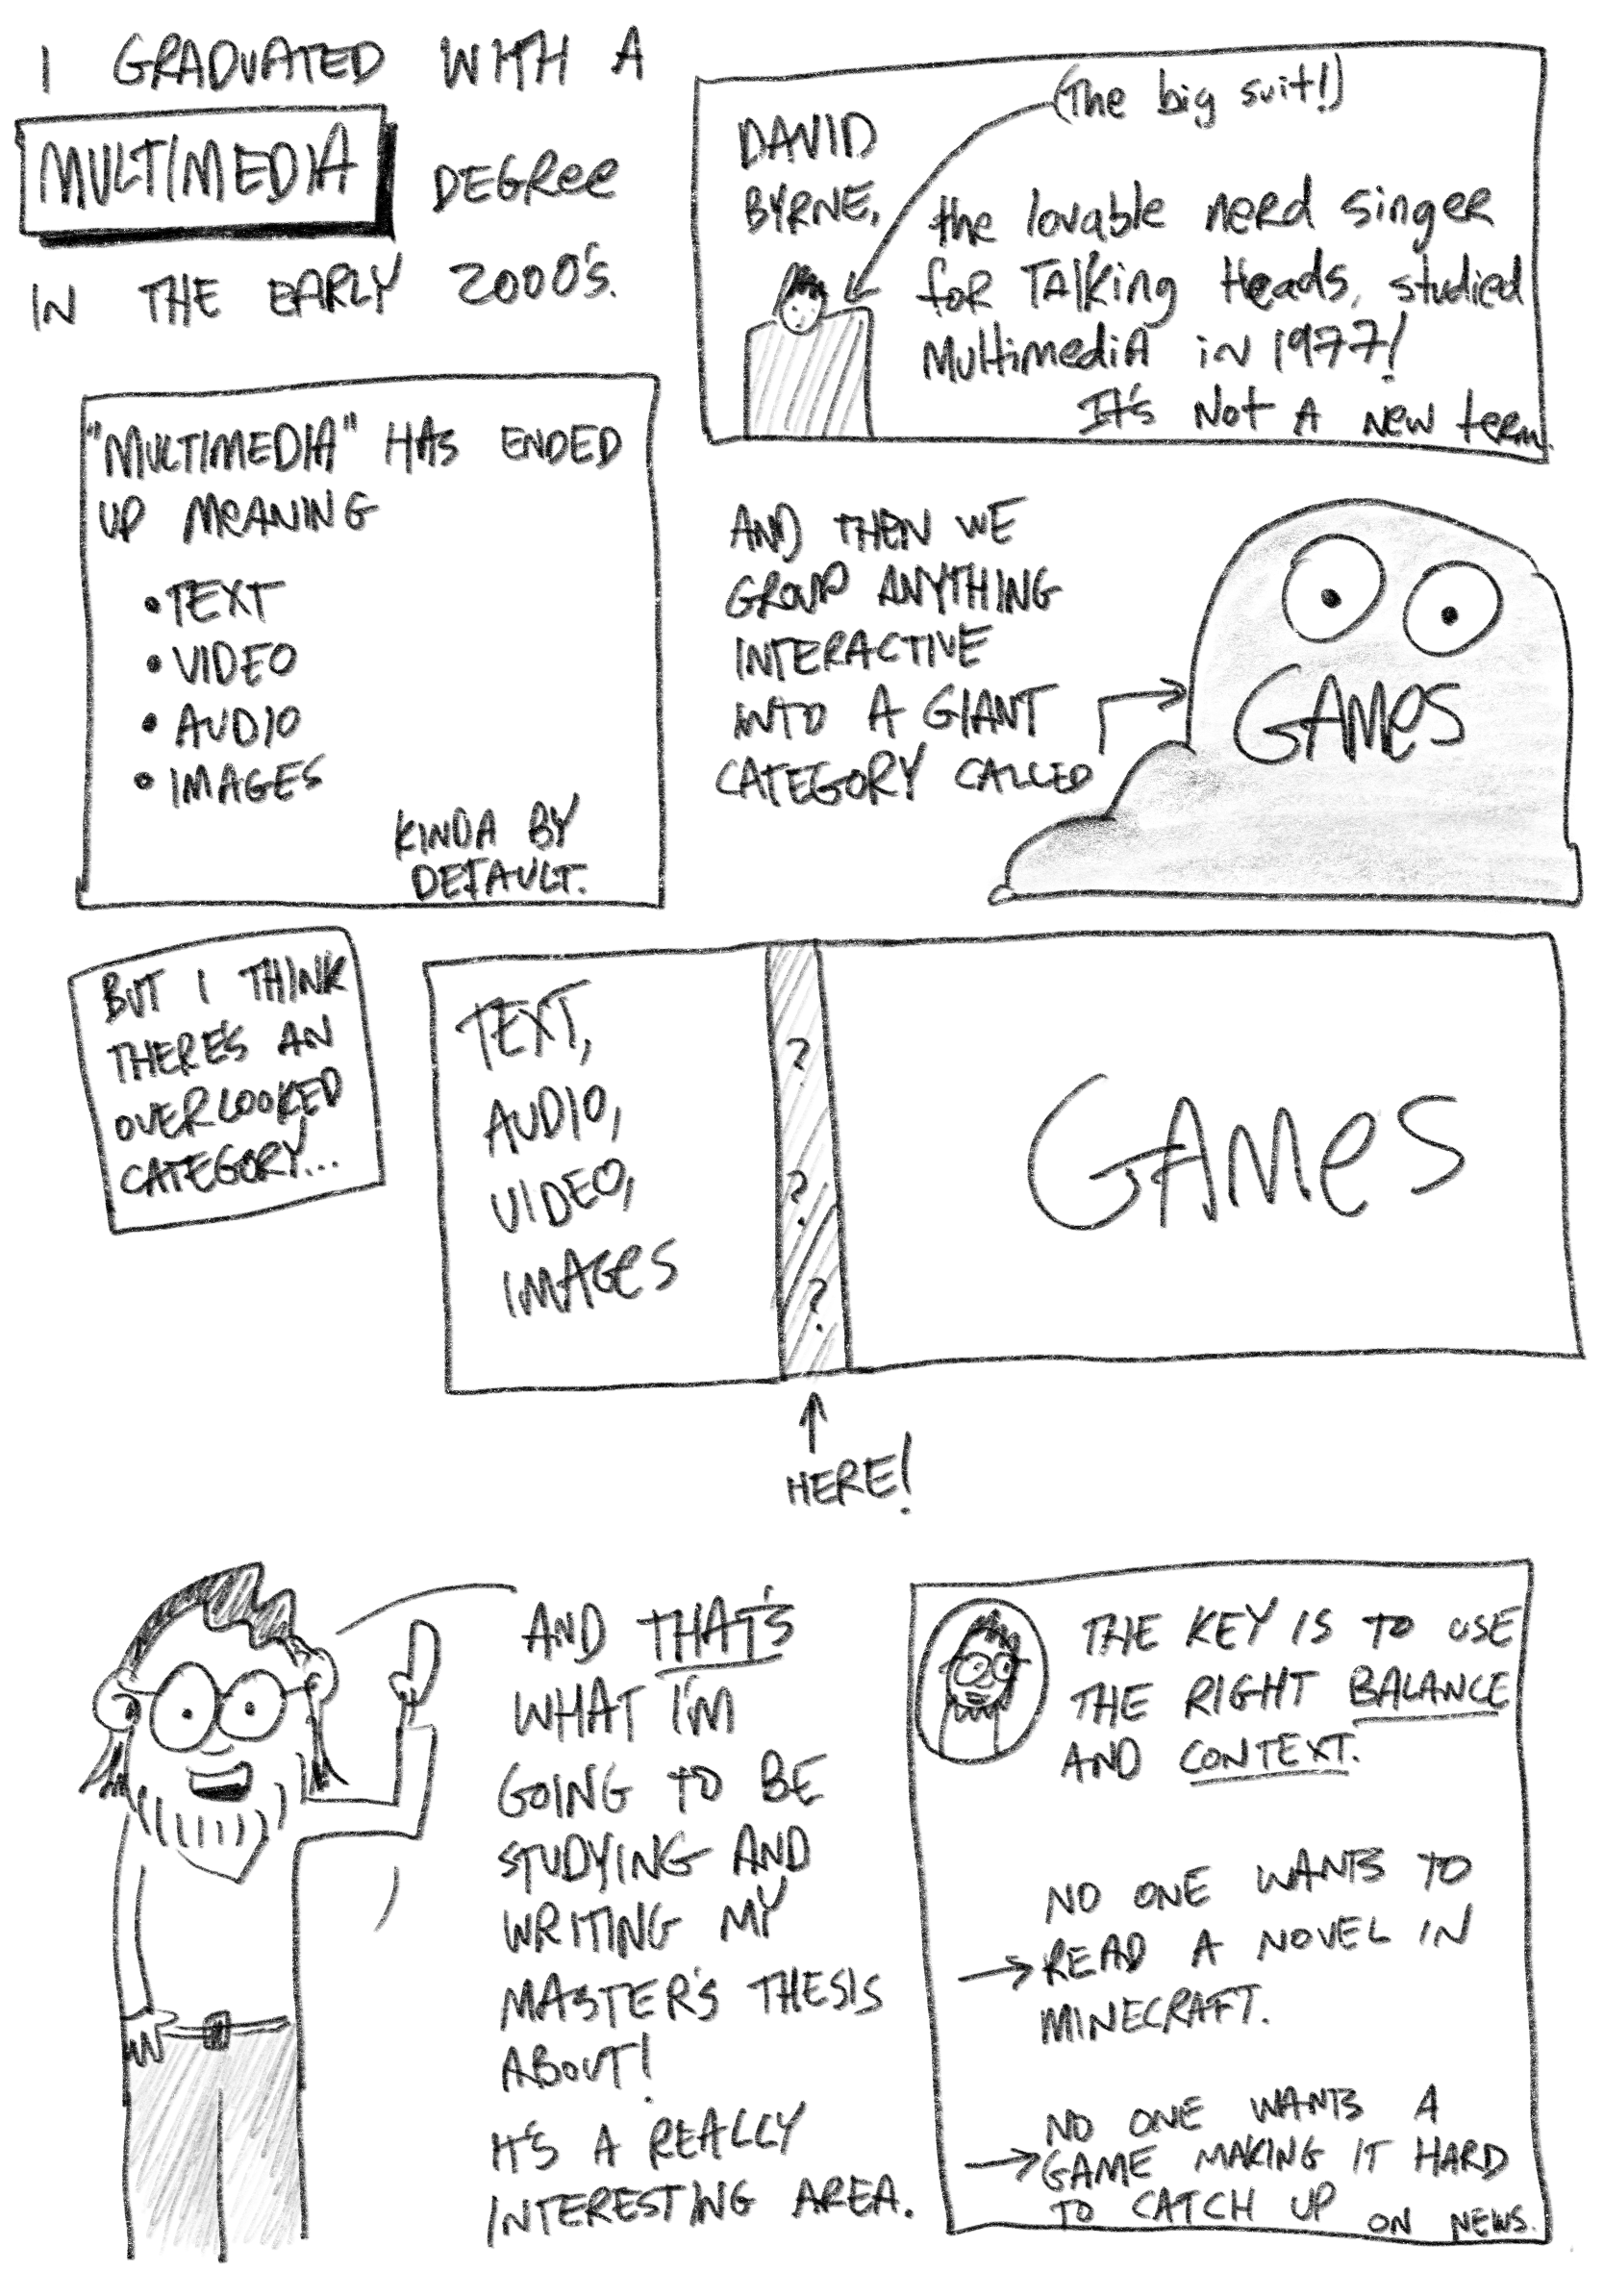 I GRADUATED WITH A
MULTIMEDIA DEGREE
IN THE EARLY 2000'S.
(The big suit!)
DAVID
BYRNE,
the lovable nerd singer
for Talking Heads, studied
Multimedia in 1977!
It's Not A new term.
"MULTIMEDIA" HAS ENDED
UP MEANING
• TEXT
• VIDEO
• AUDIO
• IMAGES
KINDA BY
DEFAULT.
AND THEN WE
GROUP ANYTHING
INTERACTIVE
INTO A GIANT
CATEGORY CALLED
GAMES
BUT I THINK
THERE'S AN
OVERLOOKED
CATEGORY...
TEXT,
AUDIO,
VIDEO,
IMAGES
?
?
?
GAMES
HERE!
AND THAT'S
WHAT I'M
GOING TO BE
STUDYING AND
WRITING MY
MASTER'S THESIS
ABOUT!
IT'S A REALLY
INTERESTING AREA.
THE KEY IS TO USE
THE RIGHT BALANCE
AND CONTEXT.
NO ONE WANTS TO
→ READ A NOVEL IN
MINECRAFT.
NO ONE WANTS A
→ GAME MAKING IT HARD
TO CATCH UP ON NEWS.